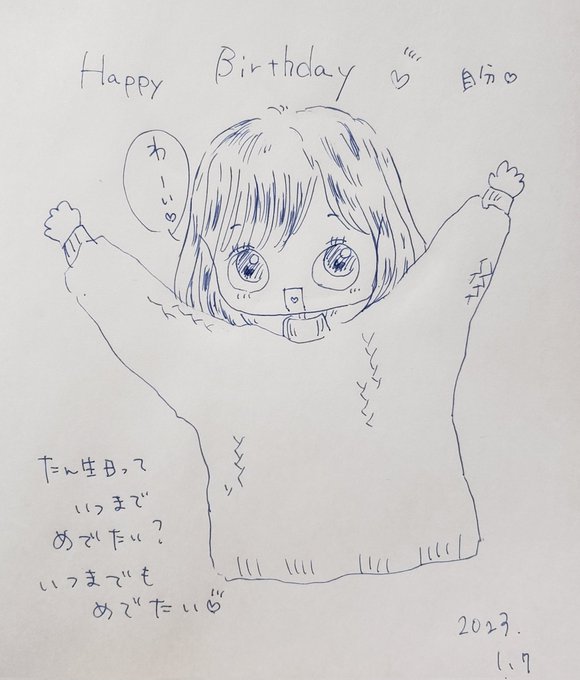 Happy Birthday ♡ 自分♡
わーい♡
たん生日って
いつまで
めでたい?
いつまでも
めでたい♡
2023.
1.7